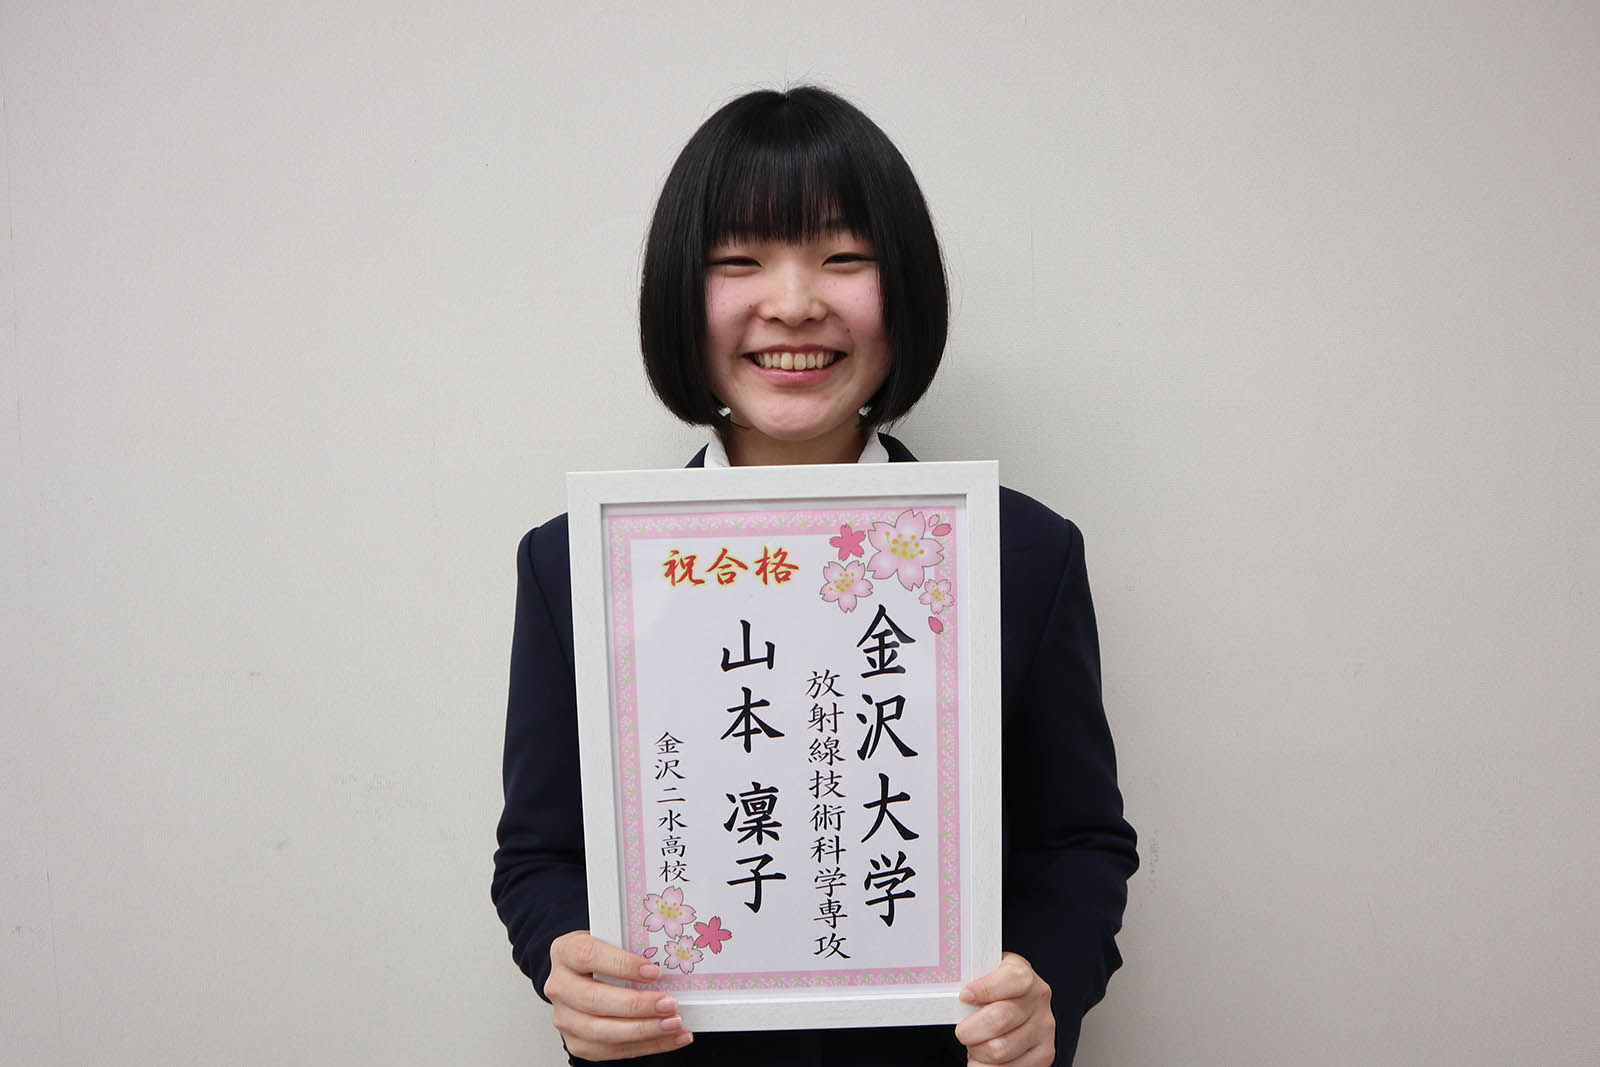 祝合格
金沢大学
放射線技術科学専攻
山本 凜子
金沢二水高校